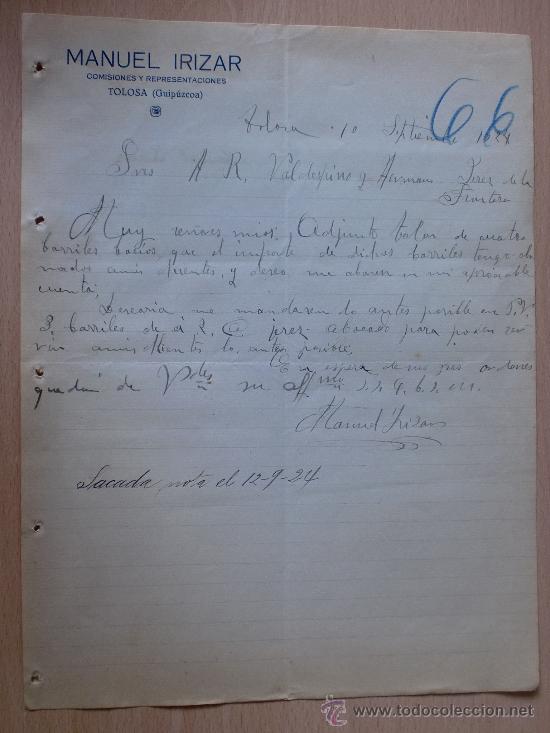 MANUEL IRIZAR
COMISIONES Y REPRESENTACIONES
TOLOSA (Guipúzcoa)
66
Tolosa 10 Septiembre 1924
Sres A. R. Valdespino y Hermano Jerez de la
Frontera
Muy señores mios: Adjunto talon de cuatro
barriles bacios, que el importe de dichos barriles tengo abo
nados a mis clientes, y deseo, me abonen en mi apreciable
cuenta;
Desearia, me mandaren lo antes posible en
2 barriles de a 2 @ jerez abocado para poder ser
vir a mis clientes lo antes posible,
En espera de sus gras ordenes
quedan de Vdes su
Manuel Irizar
Sacada nota el 12-9-24
www.todocoleccion.net